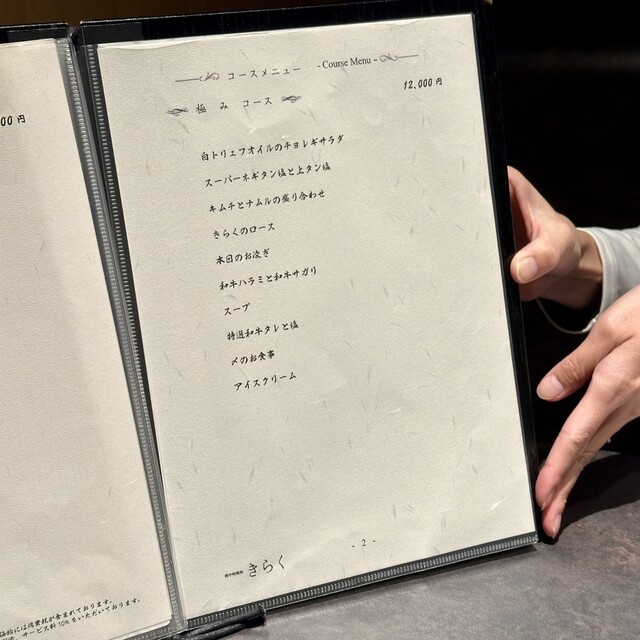 00円
格には消費税が含まれております。
サービス料10%をいただいております。
コースメニュー - Course Menu -
極み コース
12,000円
白トリュフオイルのチョレギサラダ
スーパーネギタン塩と上タン塩
キムチとナムルの盛り合わせ
きらくのロース
本日のお次ぎ
和牛ハラミと和牛サガリ
スープ
特選和牛タレと塩
〆のお食事
アイスクリーム
きらく
- 2 -